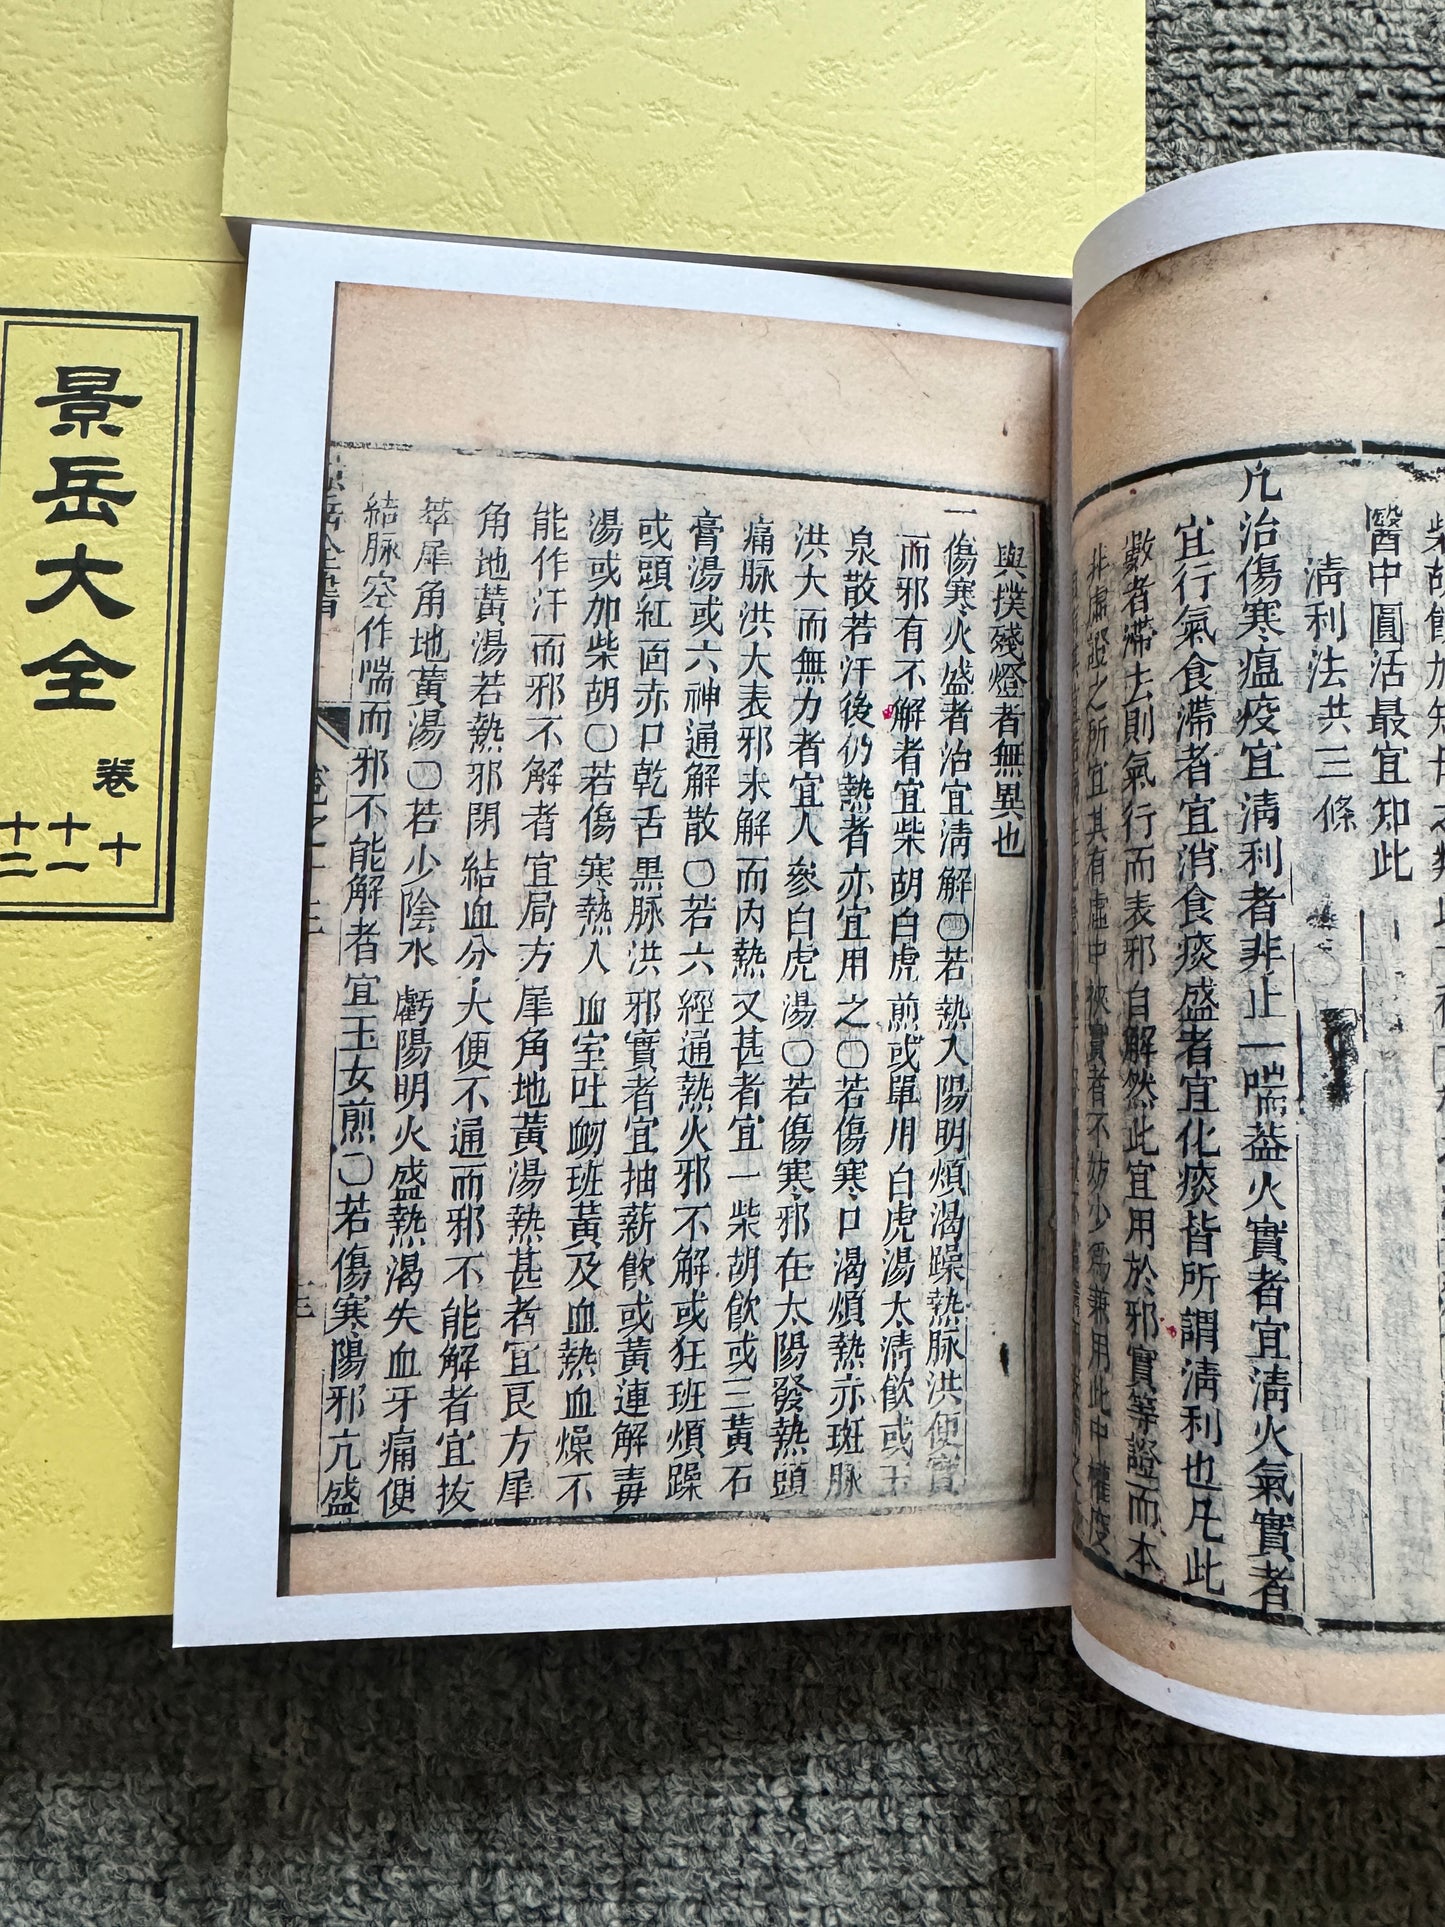 景岳大全 卷十
十一
十二
醫中圓活最宜知此
清利法共三條
凢治傷寒瘟疫宜清利者非止一端葢火實者宜清火氣實者
宜行氣食滯者宜消食痰盛者宜化痰皆所謂清利也凢此
數者滯去則氣行而表邪自解然此宜用於邪實等證而本
非虛證之所宜其有虛中挾實者不妨少爲兼用此中權度
與撲殘燈者無異也
一傷寒火盛者治宜清解〇若熱入陽明煩渴躁熱脉洪便實
而邪有不解者宜柴胡白虎煎或單用白虎湯太清飲或玉
泉散若汗後仍熱者亦宜用之〇若傷寒口渴煩熱赤斑脉
洪大而無力者宜人參白虎湯〇若傷寒邪在太陽發熱頭
痛脉洪大表邪未解而內熱又甚者宜一柴胡飲或三黃石
膏湯或六神通解散〇若六經通熱火邪不解或狂班煩躁
或頭紅面赤口乾舌黒脉洪邪實者宜抽薪飲或黃連解毒
湯或加柴胡〇若傷寒熱入血室吐衂班黃及血熱血燥不
能作汗而邪不解者宜局方犀角地黃湯熱甚者宜良方犀
角地黃湯若熱邪閉結血分大便不通而邪不能解者宜拔
萃犀角地黃湯〇若少陰水虧陽明火盛熱渴失血牙痛便
結脉空作喘而邪不能解者宜玉女煎〇若傷寒陽邪亢盛